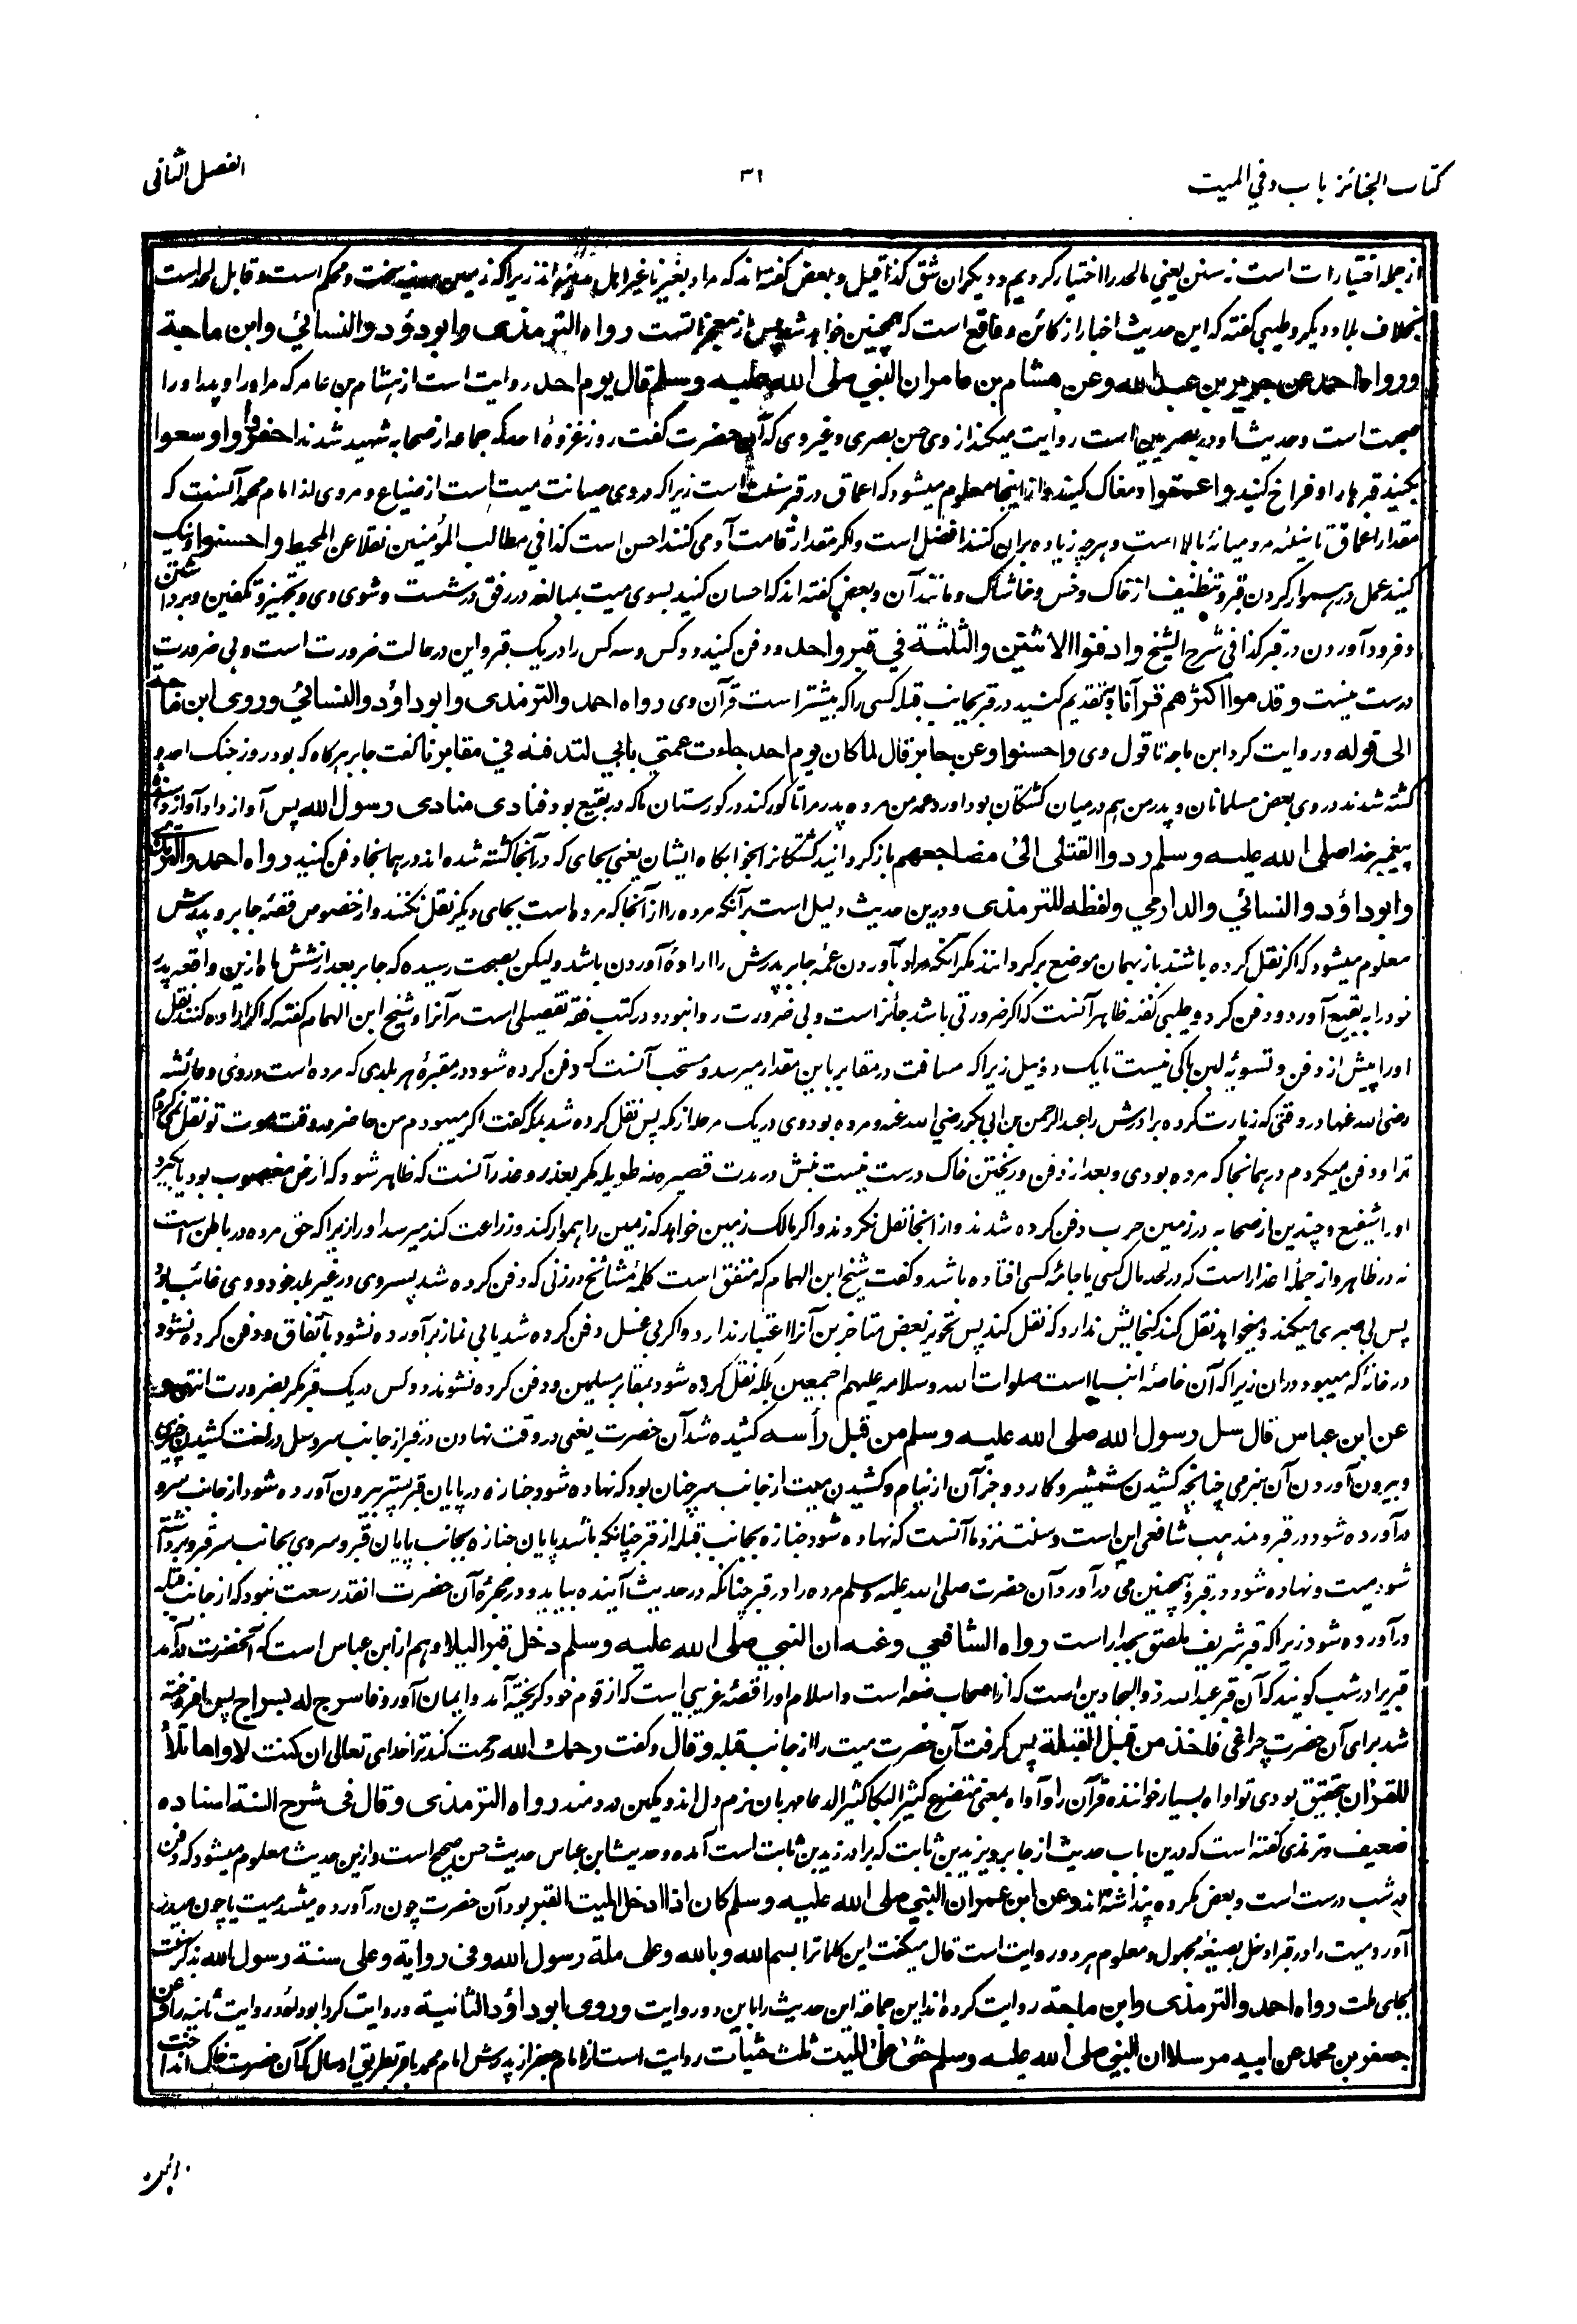 کتاب الجنائز باب دفن المیت
۳۱
الفصل الثانی
از جمله اختیارات است نه سنن یعنی ما لحد را اختیار کردیم و دیگران شق کذا قیل و بعض گفته اند که مراد بغیرنا غیر اهل مدینه اند زیرا که زمین مدینه سخت و محکم است و قابل لحد است
بخلاف بلاد دیگر و طیبی گفته که این حدیث اخبار از کائن و واقع است که همچنین خواهد شد پس از معجزاتست رواه الترمذی وابوداؤد والنسائی وابن ماجة
ورواه احمد عن جریر بن عبدالله وعن هشام بن عامر ان النبی صلی الله علیه وسلم قال یوم احد روایت است از هشام بن عامر که مر او را و پدر او را
صحبت است و حدیث او در بصریین است روایت میکند از وی حسن بصری و غیر وی که آن حضرت گفت روز غزوهٔ احد که جماعه از صحابه شهید شدند احفروا واوسعوا
بکنید قبرها را و فراخ کنید واعمقوا و مغاک کنید و از اینجا معلوم میشود که اعماق در قبر سنت است زیرا که در وی صیانت میت است از ضیاع و مروی از امام محمد آنست که
مقدار اعماق تا سینهٔ مرد میانه بالا است و هر چه زیاده بران کنند افضل است و اگر مقدار قامت آدمی کنند احسن است کذا فی مطالب المؤمنین نقلا عن المحیط واحسنوا و نیک
کنید عمل در هموار کردن قبر و تنظیف از خاک و خس و خاشاک و مانند آن و بعض گفته اند که احسان کنید بسوی میت بمبالغه در رفق در شست و شوی وی و تجهیز و تکفین و برداشتن
و فرود آوردن در قبر کذا فی شرح الشیخ وادفنوا الاثنین والثلثة فی قبر واحد و دفن کنید دو کس و سه کس را در یک قبر و این در حالت ضرورت است و بی ضرورت
درست نیست وقدموا اکثرهم قرآنا و تقدیم کنید در قبر بجانب قبله کسی را که بیشتر است قرآن وی رواه احمد والترمذی وابو داؤد والنسائی وروی ابن ماجة
الی قوله و روایت کرد ابن ماجه تا قول وی واحسنوا وعن جابر قال لما کان یوم احد جاءت عمتی بابی لتدفنه فی مقابرنا گفت جابر هرگاه که بود روز جنگ احد و
کشته شدند در وی بعض مسلمانان و پدر من هم در میان کشتگان بود آورد عمه من مرده پدر مرا تا گور کند در گورستان ما که در بقیع بود فنادی منادی رسول الله پس آواز داد آواز دهنده
پیغمبر خدا صلی الله علیه وسلم ردوا القتلی الی مضاجعهم باز گردانید کشتگان را بخوابگاه ایشان یعنی بجای که در آنجا کشته شده اند در همانجا دفن کنید رواه احمد والترمذی
وابو داؤد والنسائی والدارمی ولفظه للترمذی و درین حدیث دلیل است بر آنکه مرده را از آنجا که مرده است بجای دیگر نقل نکنند و از خصوص قصّهٔ جابر و پدرش
معلوم میشود که اگر نقل کرده باشند باز بهمان موضع برگردانند مگر آنکه مراد بآوردن عمّه جابر پدرش را ارادهٔ آوردن باشد و لیکن بصحت رسیده که جابر بعد از شش ماه ازین واقعه پدر
خود را به بقیع آورد و دفن کرد و طیبی گفته ظاهر آنست که اگر ضرورتی باشد جائز است و بی ضرورت روا نبود و در کتب فقه تفصیلی است مر آنرا و شیخ ابن الهمام گفته که اگر اراده کنند نقل
او را پیش از دفن و تسویهٔ لبن باکی نیست تا یک دو میل زیرا که مسافت در مقابر باین مقدار میرسد و مستحب آنست که دفن کرده شود در مقبرهٔ هر بلدی که مرده است در وی و عائشه
رضی الله عنها در وقتی که زیارت کرد برادرش را عبدالرحمن بن ابی بکر رضی الله عنه و مرده بود وی در یک مرحله از مکه پس نقل کرده شد بمکه گفت اگر میبودم من حاضر در وقت موت تو نقل نمی کردم
ترا و دفن میکردم در همانجا که مرده بودی و بعد از دفن و ریختن خاک درست نیست نبش در مدت قصیره نه طویله مگر بعذر و عذر آنست که ظاهر شود که ارض مغصوب بود یا بگیرد
او را شفیع و چندین از صحابه در زمین حرب دفن کرده شدند و از انجا نقل نکردند و اگر مالک زمین خواهد که زمین را هموار کند و زراعت کند میرسد او را زیرا که حق مرده در باطن است
نه در ظاهر و از جملهٔ اعذار است که در لحد مال کسی یا جامه کسی افتاده باشد و گفت شیخ ابن الهمام که متفق است کلمهٔ مشائخ در زنی که دفن کرده شد پسر وی در غیر بلد خود و وی غائب بود
پس بی صبری میکند و میخواهد نقل کند گنجایش ندارد که نقل کند پس تجویز بعض متاخرین آنرا اعتبار ندارد و اگر بی غسل دفن کرده شد یا بی نماز برآورده نشود باتفاق و دفن کرده نشود
در خانه که میبود دران زیرا که آن خاصهٔ انبیا است صلوات الله و سلامه علیهم اجمعین بلکه نقل کرده شود بمقابر مسلمین و دفن کرده نشوند دو کس در یک قبر مگر بضرورت انتهی و
عن ابن عباس قال سل رسول الله صلی الله علیه وسلم من قبل رأسه کشیده شد آن حضرت یعنی در وقت نهادن در قبر از جانب سر و سل در لغت کشیدن چیزی
و بیرون آوردن آن بنرمی چنانچه کشیدن شمشیر و کارد و جز آن از نیام و کشیدن میت از جانب سر چنان بود که نهاده شود جنازه در پایان قبر پستر بیرون آورده شود از جانب سر و
درآورده شود در قبر و مذهب شافعی این است و سنت نزد ما آنست که نهاده شود جنازه بجانب قبله از قبر چنانکه باشد پایان جنازه بجانب پایان قبر و سر وی بجانب سر قبر و برداشته
شود میت و نهاده شود در قبر و همچنین می درآورد آن حضرت صلی الله علیه وسلم مرده را در قبر چنانکه در حدیث آینده بیاید و در حجرهٔ آن حضرت انقدر سعت نبود که از جانب قبله
درآورده شود زیرا که قبر شریف ملصق بجدار است رواه الشافعی وعنه ان النبی صلی الله علیه وسلم دخل قبرا لیلا و هم از ابن عباس است که آنحضرت درآمد
قبری را در شب گویند که آن قبر عبدالله ذوالبجادین است که از اصحاب صفه است و اسلام او را قصّهٔ غریبی است که از قوم خود گریخته آمد و ایمان آورد فاسرج له بسراج پس افروخته
شد برای آن حضرت چراغی فاخذ من قبل القبلة پس گرفت آن حضرت میت را از جانب قبله وقال و گفت رحمك الله رحمت کند ترا خدای تعالی ان کنت لاواها تلاء
للقرآن بتحقیق بودی تو اواه بسیار خواننده قرآن را و اواه بمعنی متضرع کثیر البکا کثیر الدعا مهربان نرم دل اند و بگین دردمند رواه الترمذی وقال فی شرح السنة اسناده
ضعیف و ترمذی گفته است که درین باب حدیث از جابر و یزید بن ثابت که برادر زید بن ثابت است آمده و حدیث ابن عباس حدیث حسن صحیح است و ازین حدیث معلوم میشود که دفن
در شب درست است و بعض مکروه پنداشته اند وعن ابن عمر ان النبی صلی الله علیه وسلم کان اذا ادخل المیت القبر بود آن حضرت چون درآورده میشد میت یا چون می در
آورد میت را در قبر ادخل بصیغه مجهول و معلوم هر دو روایت است قال میگفت این کلمات را بسم الله وبالله وعلی ملة رسول الله وفی روایة وعلی سنة رسول الله بذکر سنت
بجای ملت رواه احمد والترمذی وابن ماجة روایت کرده اند این جماعه این حدیث را باین دو روایت وروی ابو داؤد الثانیة و روایت کرد ابوداؤد روایت ثانیه را وعن
جعفر بن محمد عن ابیه مرسلا ان النبی صلی الله علیه وسلم حثی علی المیت ثلث حثیات روایت است از امام جعفر از پدرش امام محمد باقر بطریق ارسال که آن حضرت خاک انداخت